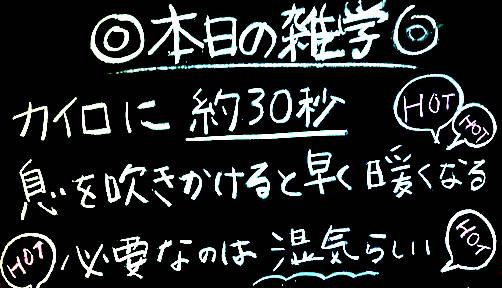 ◎本日の雑学◎
カイロに 約30秒
HOT
HOT
息を吹きかけると早く暖くなる
HOT
必要なのは 湿気らしい
HOT